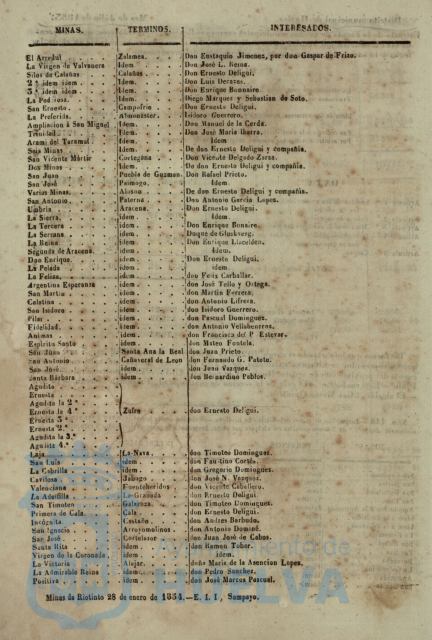 MINAS. TERMINOS. INTERESADOS.
El Arrebol Zalamea. Don Eustaquio Jimenez, por don Gaspar de Frizo.
La Virgen de Valvanera Idem. Don José L. Reina.
Silos de Calañas Calañas Don Ernesto Deligui.
2.ª idem idem Idem. Don Luis Derazas.
3.ª idem idem Idem. Don Enrique Bonnaire.
La Poderosa Idem. Diego Marquez y Sebastian de Soto.
San Ernesto Campofrio Don Ernesto Deligui.
La Preferida Almonaster. Isidoro Guerrero.
Ampliacion á San Miguel Idem. Don Manuel de la Cerda.
Trinidad Idem. Don José Maria Ibarra.
Idem. Idem
Seis Minas Idem. De don Ernesto Deligui y compañía.
San Vicente Mártir Cortegana Don Vicente Delgado Zaras.
Dos Minas Idem. De don Ernesto Deligui y compañía.
San Juan Puebla de Guzman. Don Rafael Prieto.
San José Paimogo. Idem.
Varias Minas Alosno De don Ernesto Deligui y compañía.
San Antonio Paterna Don Antonio Garcia Lopez.
Umbria Aracena. Don Ernesto Deligui.
La Sierra idem. Idem.
La Tercera idem. Don Enrique Bonaire.
La Serrana idem. Duque de Glucksberg.
La Reina idem. Don Enrique
Segunda de Aracena. idem. Idem.
Don Enrique idem. Don Ernesto Deligui.
La Pelada idem. idem.
La Feliza idem. don Felix Carballar.
Argentina Esperanza idem. don José Tello y Ortega.
San Martin idem. don Martin Ferrera.
Catalina idem. don Antonio Lifrera.
San Isidoro idem. don Isidoro Guerrero.
Pilar idem. don Pascual Dominguez.
Fidelidad. idem. don Antonio Vellahorrens.
Animas idem. don Francisco del P. Estevar.
Espiritu Santo idem. don Mateo Fontela.
San Juan Santa Ana la Real don Juan Prieto.
San Antonio Cañaveral de Leon don Fernando G. Patoto.
San José idem. don Juan Vazquez.
Santa Bárbara idem. don Bernardino Poblos.
Agudita
Ernesta
Agudita la 2.ª
Ernesta la 4.ª Zufre don Ernesto Deligui.
Ernesta 3.ª
Ernesta 2.ª
Agudita la 3.ª
Agudita 4.ª
Laja La-Nava. don Timoteo Dominguez.
San Luis idem. don Faustino Cortés.
La Cabrilla idem. don Gregorio Dominguez.
Lavilosa Jabugo don José N. Vazquez.
Valenciana Fuenteheridos don Vicente Caballero.
La Adelfilla La-Granada don Ernesto Deligui
San Timoteo Galaroza don Timoteo Dominguez.
Primera de Cala Cala don Ernesto Deligui.
Incógnita Castaño. don Andres Barbudo.
San Ignacio Arroyomolinos don Antonio Domané.
San José Cortelazor don Juan José de Cobos.
Santa Rita idem. don Ramon Tobar.
Virgen de la Coronada idem. idem.
La Victoria Alajar. doña Maria de la Asencion Lopez.
La Admirable Reina idem. don Pedro Sanchez.
Positiva idem. don José Marcos Pascual.
Minas de Riotinto 28 de enero de 1854.—E. I. I, Sampayo.
Ayuntamiento de
HUELVA